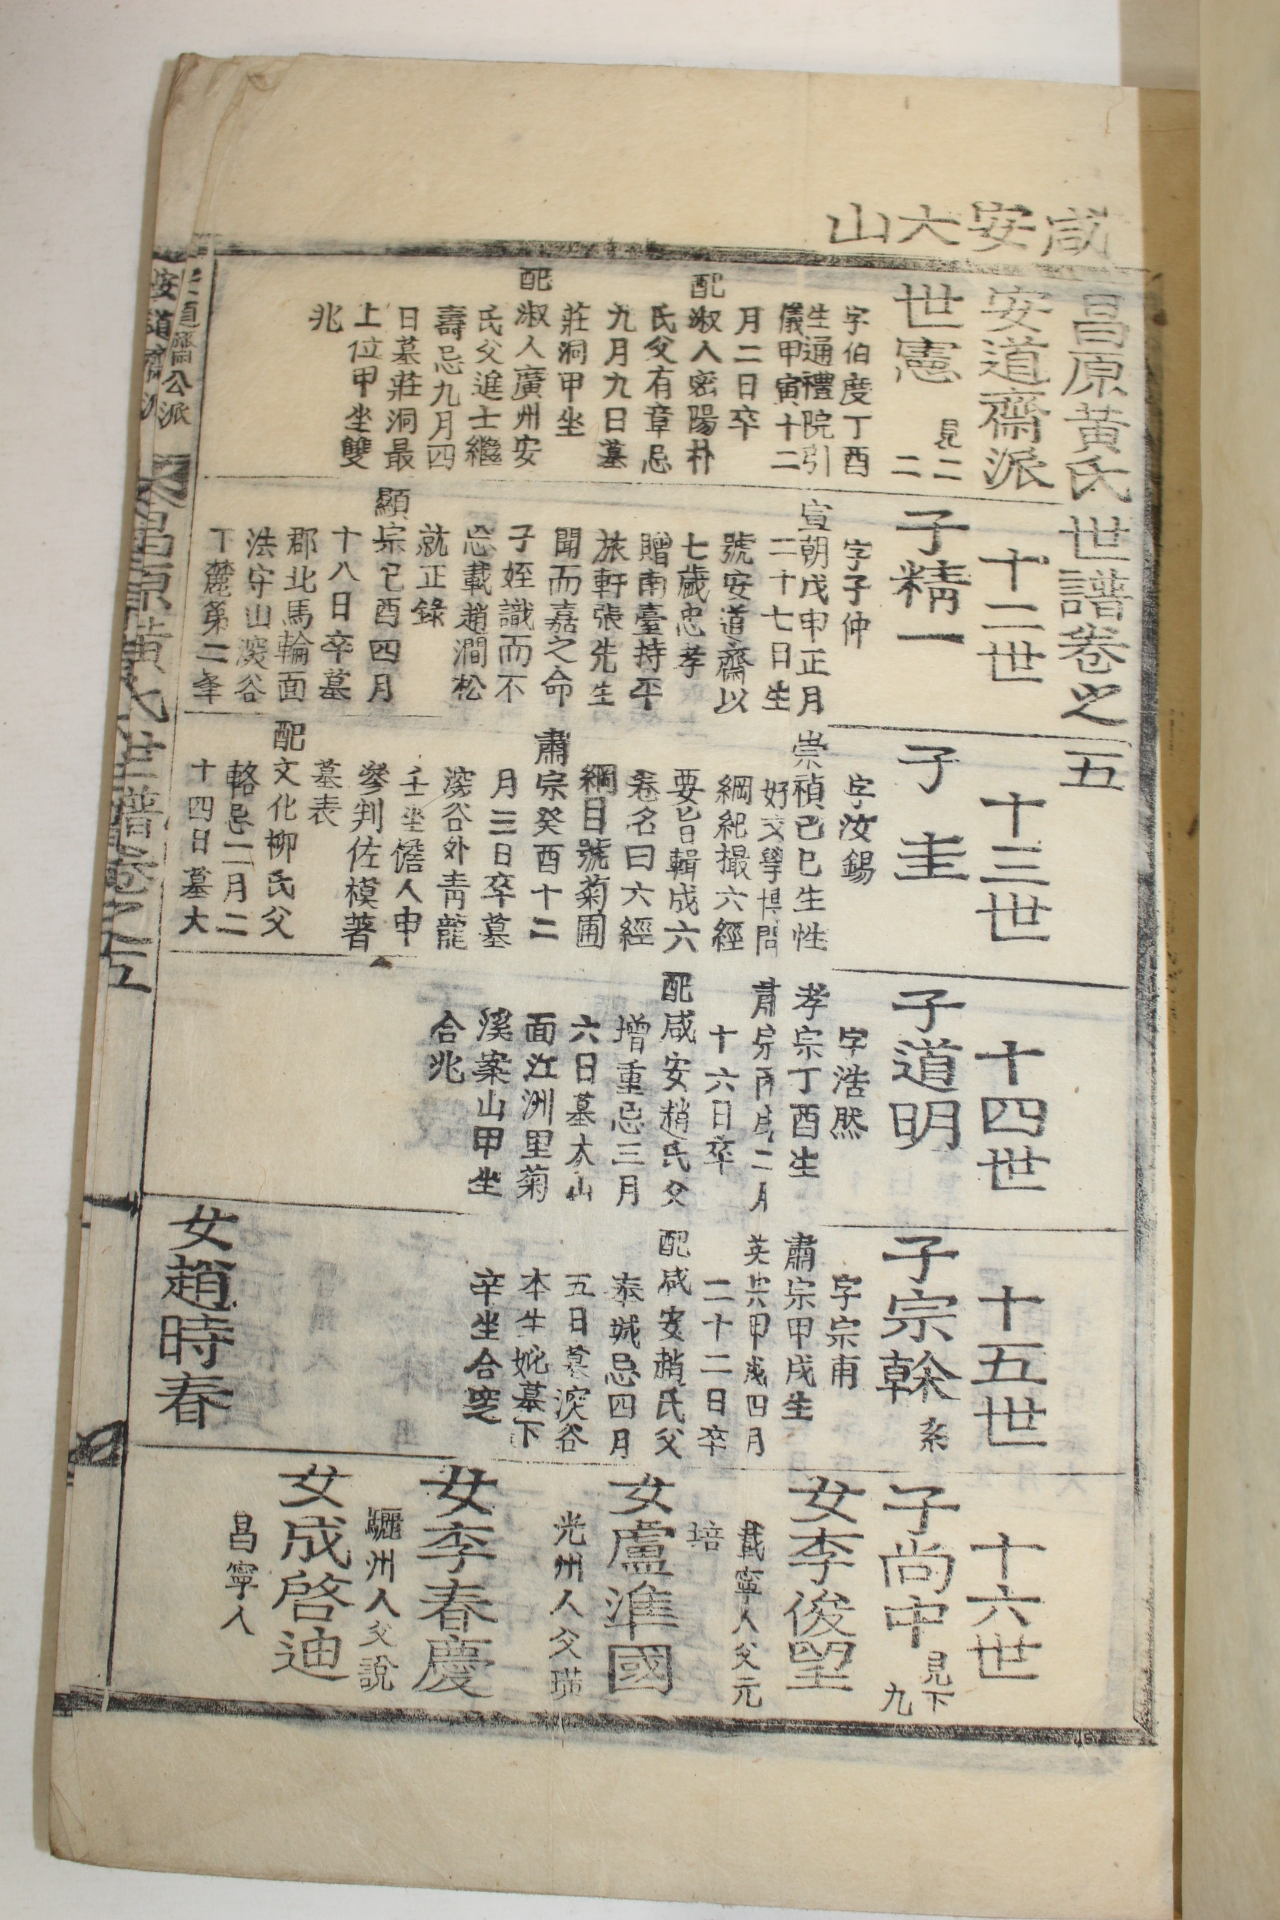 咸安大山
昌原黃氏世譜卷之五
安道齋派
世憲
見二
二
字伯度丁酉
生通禮院引
儀甲寅十二
月二日卒
配淑人密陽朴
氏父有章忌
九月九日墓
莊洞甲坐
配淑人廣州安
氏父進士繼
壽忌九月四
日墓莊洞最
上位甲坐雙
兆
十二世
子精一
字子仲
宣朝戊申正月
二十七日生
號安道齋以
七歲忠孝
贈南臺持平
旅軒張先生
聞而嘉之命
子姪識而不
忘載趙澗松
就正錄
顯宗己酉四月
十八日卒墓
郡北馬輪面
法守山深谷
丁麓第二峯
十三世
子圭
字汝錫
崇禎己巳生性
好文學博問
綱紀撮六經
要旨輯成六
卷名曰六經
綱目號菊圃
肅宗癸酉十二
月三日卒墓
深谷外青龍
壬坐儋人申
參判佐模著
墓表
配文化柳氏父
輅忌二月二
十四日墓大
十四世
子道明
字浩然
孝宗丁酉生
肅宗丙戌二月
十六日卒
配咸安趙氏父
增重忌三月
六日墓大山
面江洲里菊
溪案山甲坐
合兆
十五世
子宗榦
系
字宗甫
肅宗甲戌生
英宗甲戌四月
二十二日卒
配咸安趙氏父
泰城忌四月
五日墓深谷
本生妣墓下
辛坐合窆
女趙時春
十六世
子尚中
見下
九
女李俊望
載寧人父元
培
女盧準國
光州人父瑛
女李春慶
驪州人父說
女成啓迪
昌寧人
安道齋公派
昌原黃氏世譜卷之五